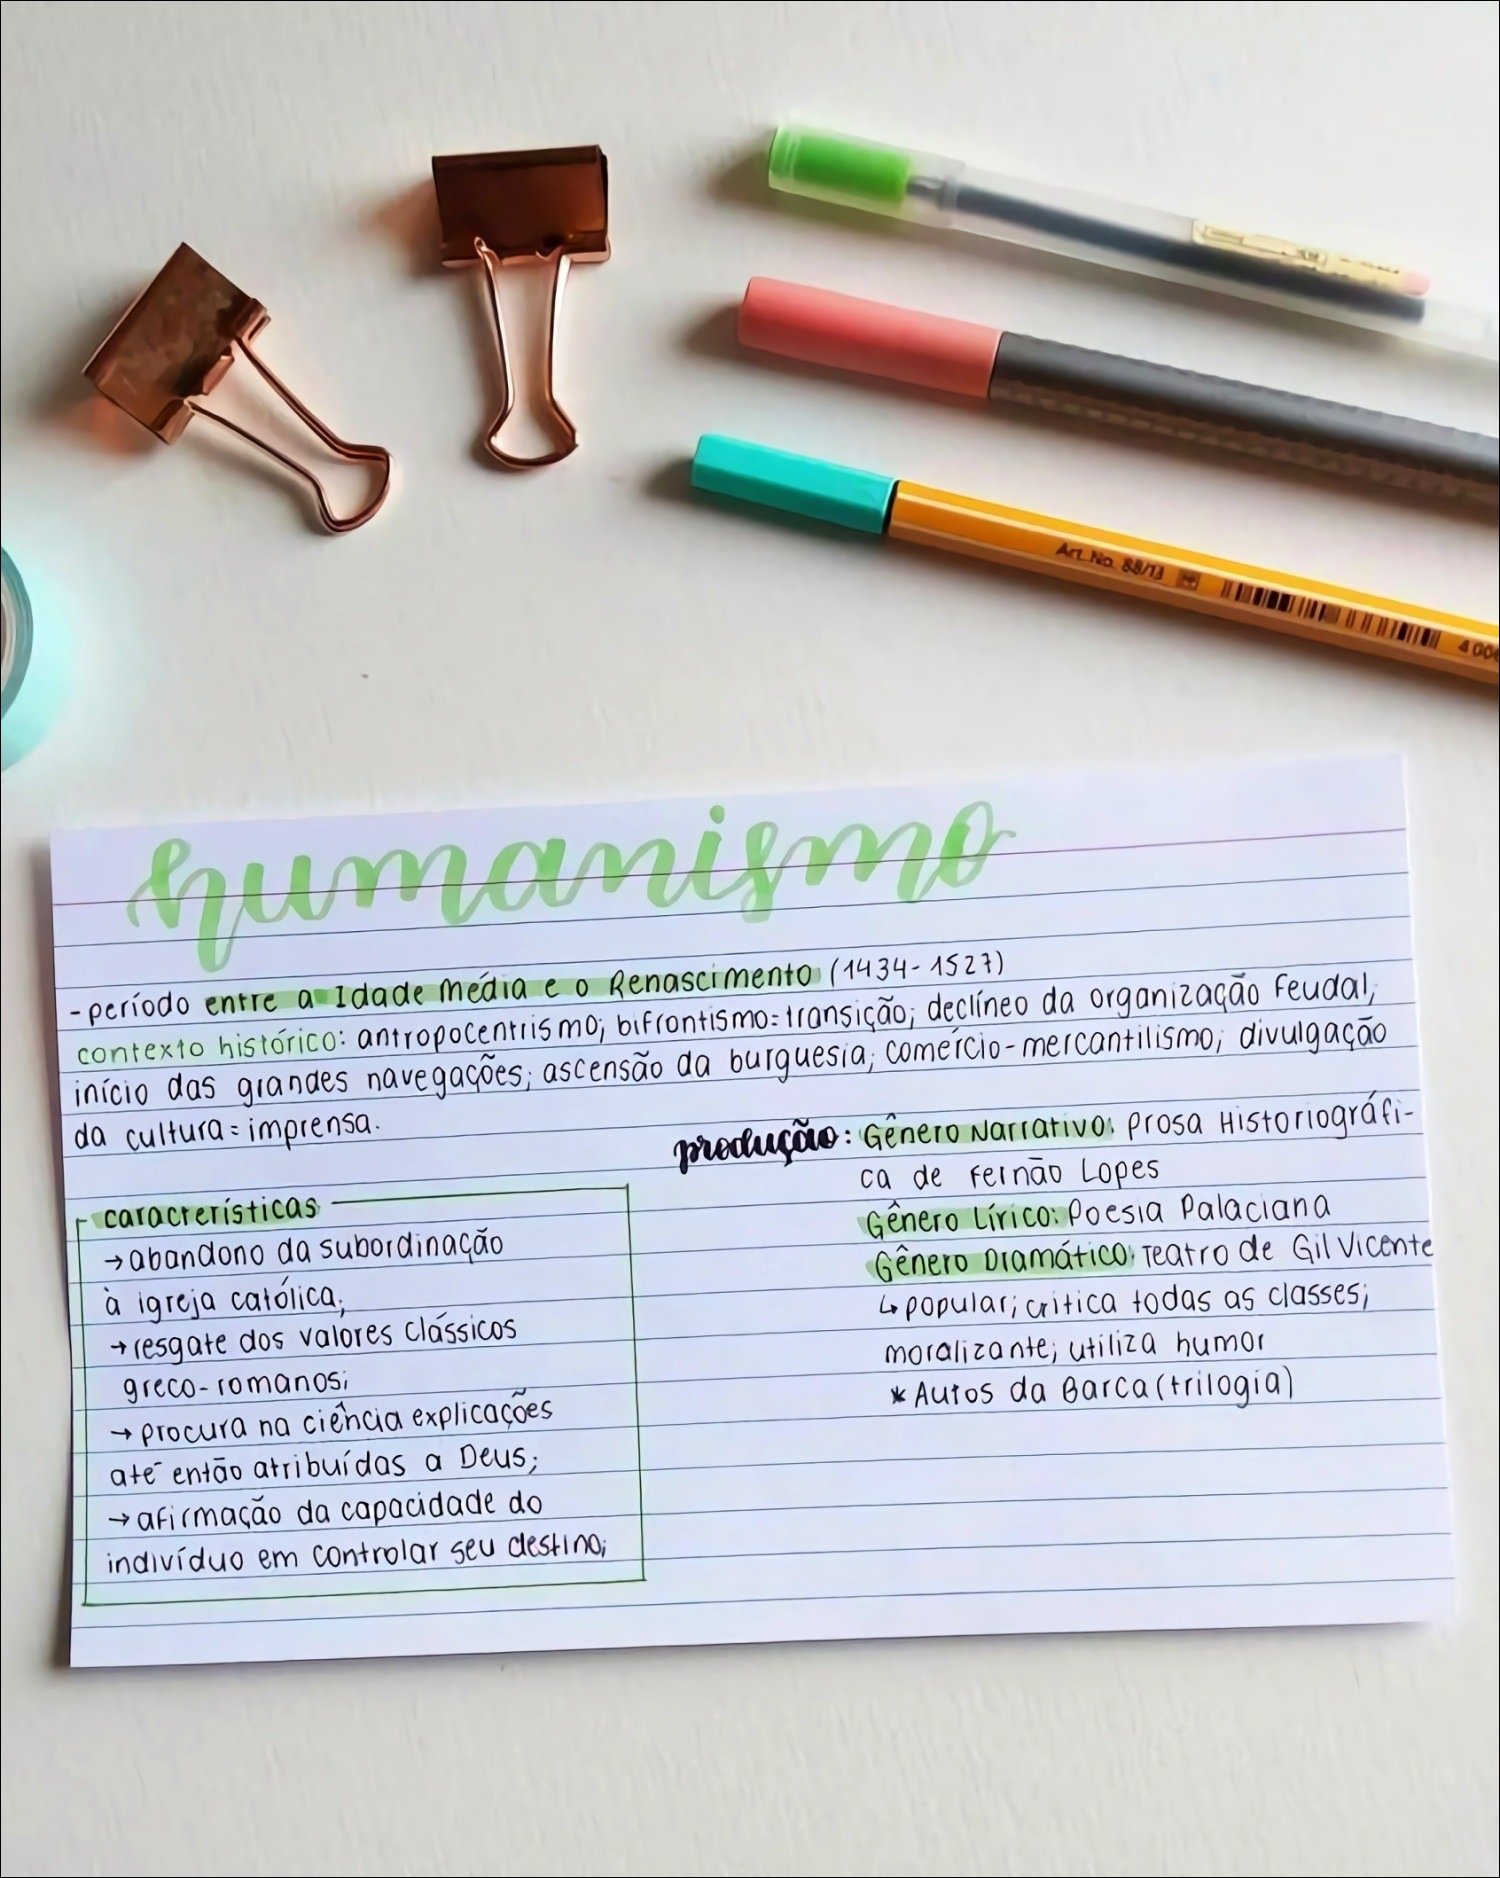 Art. No. 88/13
4 006
humanismo
-período entre a Idade média e o Renascimento (1434-1527)
contexto histórico: antropocentrismo; bifrontismo=transição; declíneo da organização feudal;
início das grandes navegações; ascensão da burguesia; comércio-mercantilismo; divulgação
da cultura=imprensa.
características
→abandono da subordinação
à igreja católica;
→resgate dos valores clássicos
greco-romanos;
→procura na ciência explicações
até então atribuídas a Deus;
→afirmação da capacidade do
indivíduo em controlar seu destino;
produção: Gênero Narrativo: Prosa Historiográfi-
ca de Fernão Lopes
Gênero Lírico: Poesia Palaciana
Gênero Dramático: Teatro de Gil Vicente
↳popular; critica todas as classes;
moralizante; utiliza humor
*Autos da Barca (trilogia)